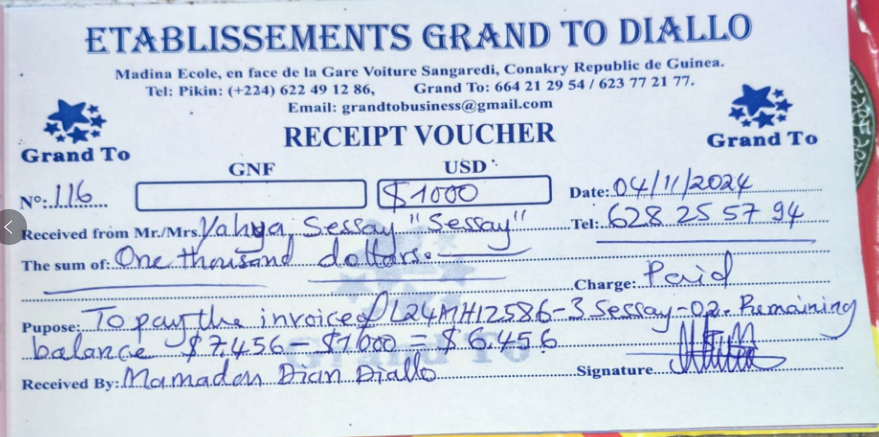 ETABLISSEMENTS GRAND TO DIALLO
Madina Ecole, en face de la Gare Voiture Sangaredi, Conakry Republic de Guinea.
Tel: Pikin: (+224) 622 49 12 86, Grand To: 664 21 29 54 / 623 77 21 77.
Email: grandtobusiness@gmail.com
RECEIPT VOUCHER
Grand To Grand To
GNF USD
Nº: 116 $1000 Date: 04/11/2024
Received from Mr./Mrs. Yahya Sessay "Sessay" Tel: 628 25 57 94
The sum of: One thousand dollars.
Charge: Paid
Pupose: To pay the invoice of L24MH12586-3 Sessay-02. Remaining
balance $7.456 - $1000 = $6.456
Received By: Mamadou Dian Diallo Signature